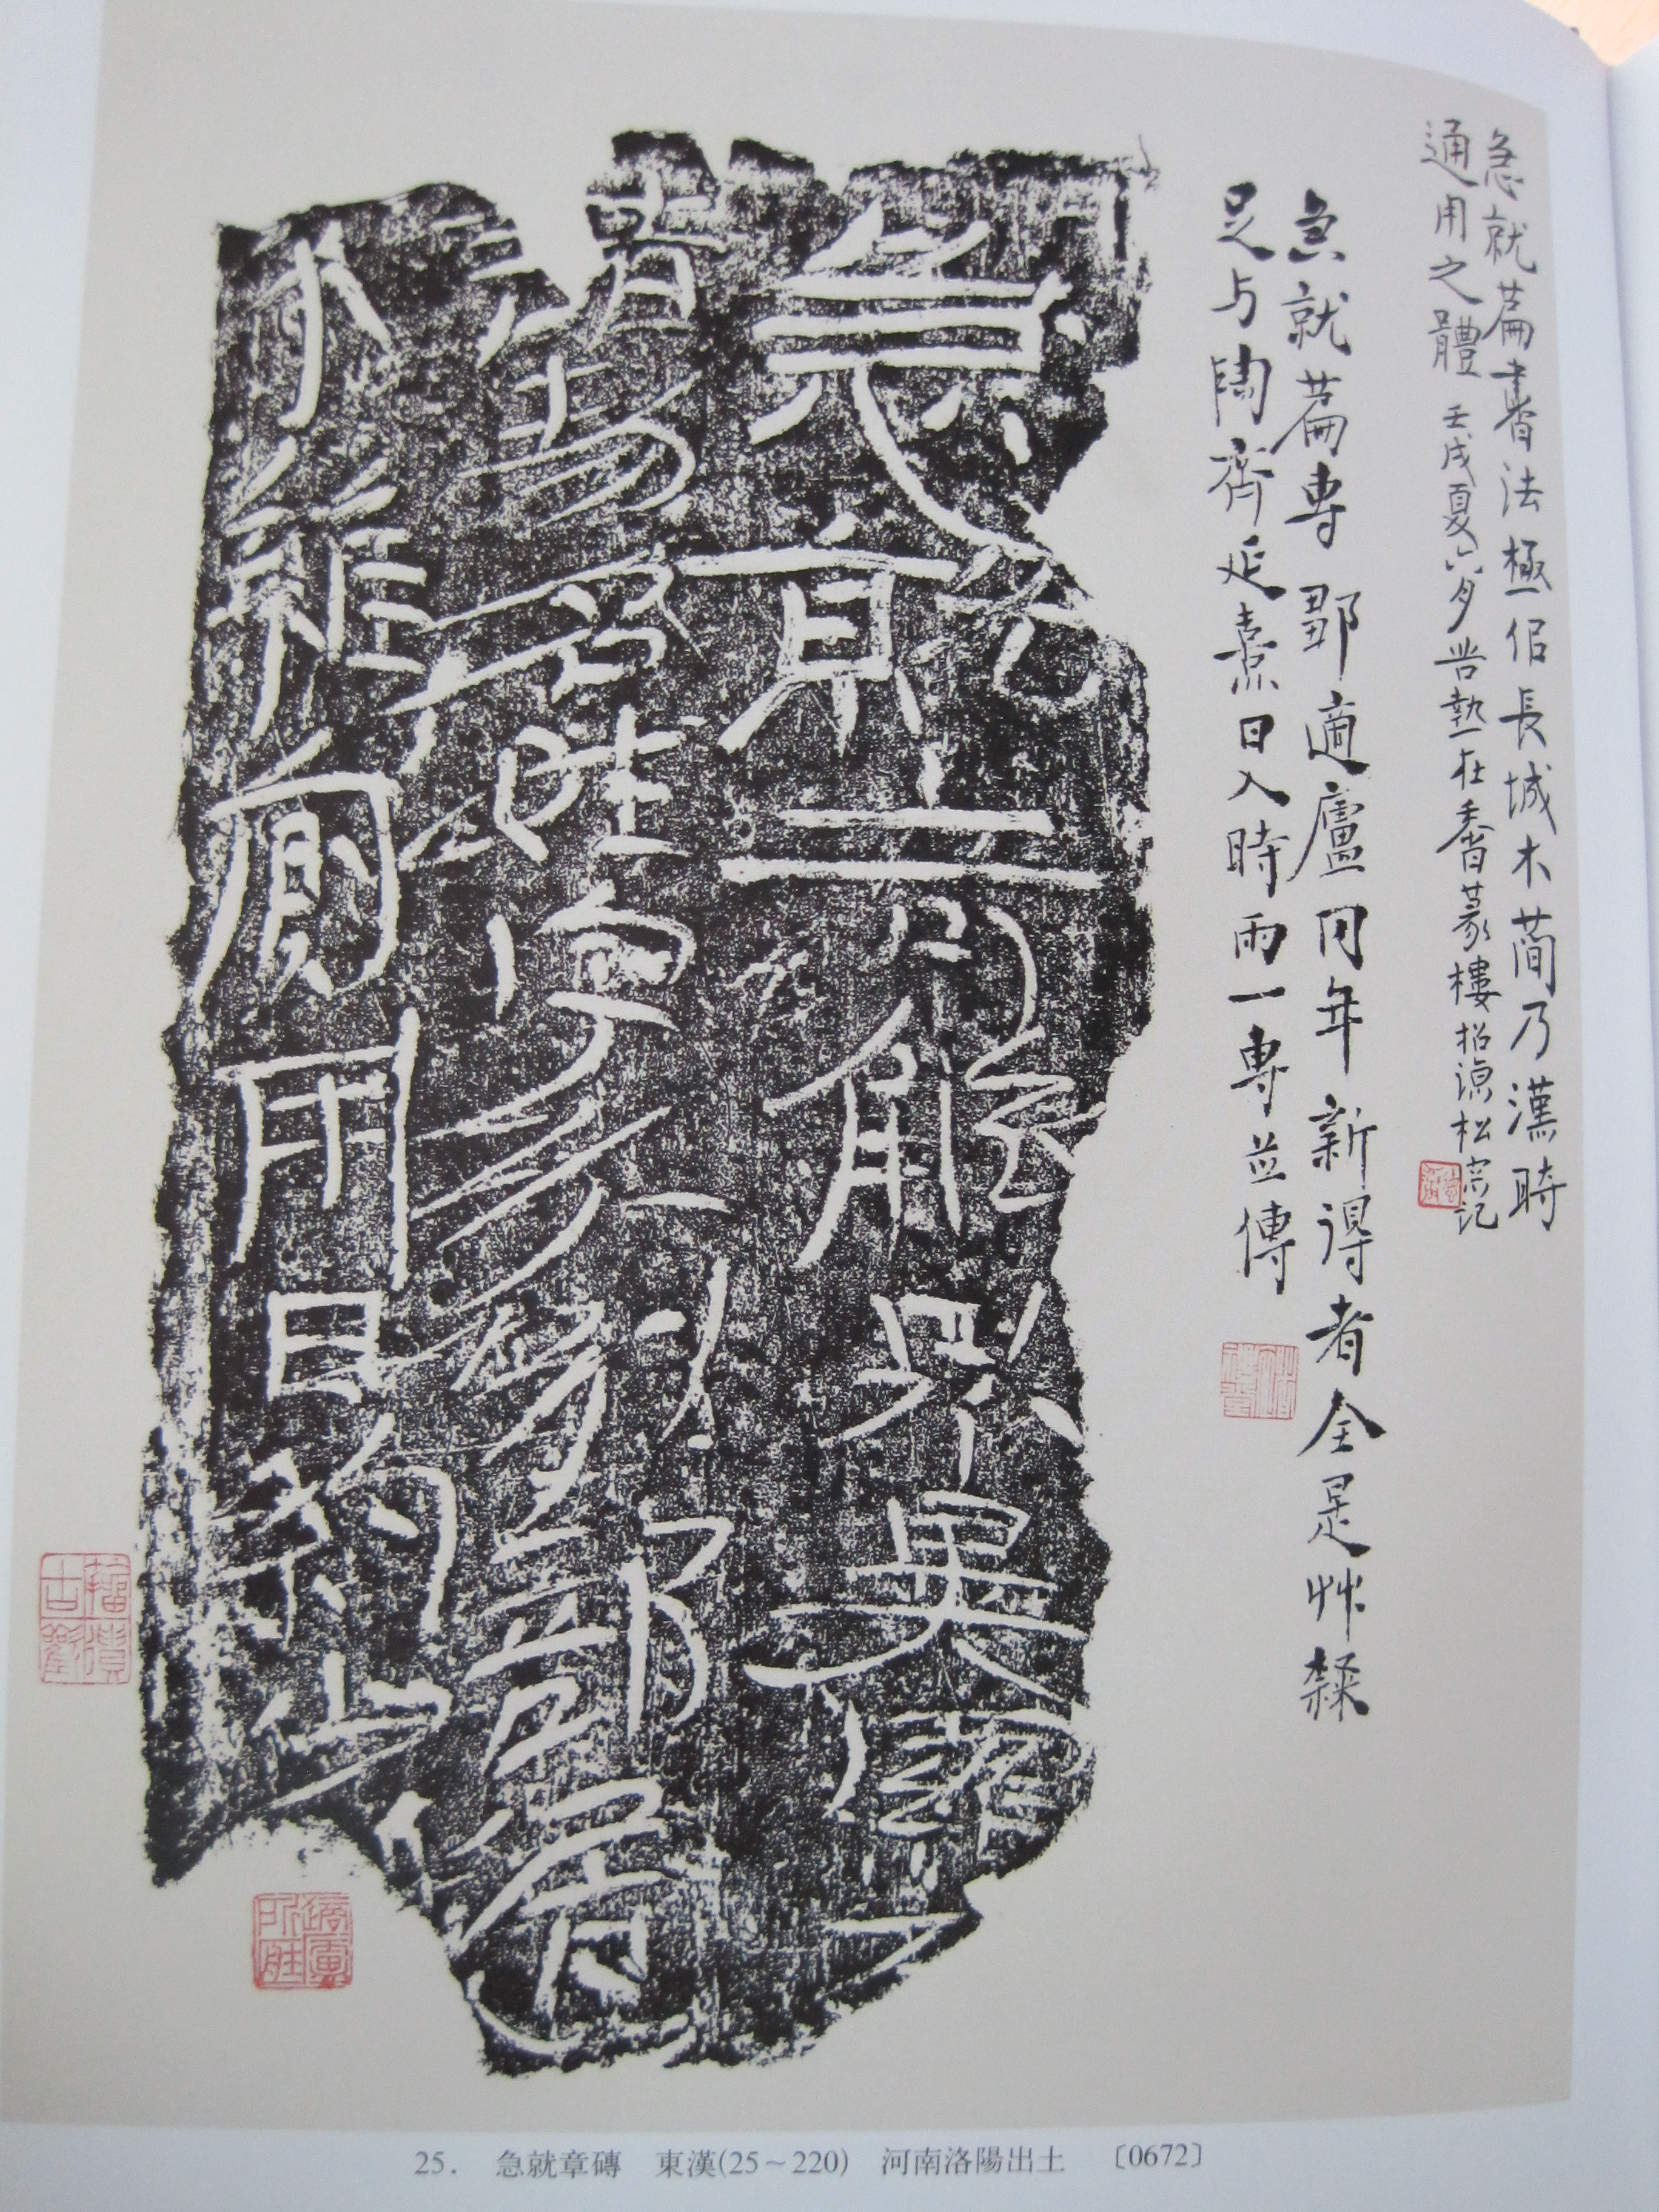 急就篇書法極佀長城木蕳乃漢時
通用之體 壬戌夏六夕苦熱在
急就篇專鄒適廬同年新得者全是艸隸
足与陶齊延熹日入時雨一專並傳
急就奇觚與衆異羅列
諸物名姓字分別部居
不雜廁用日約少
25. 急就章磚 東漢(25～220) 河南洛陽出土 〔0672〕